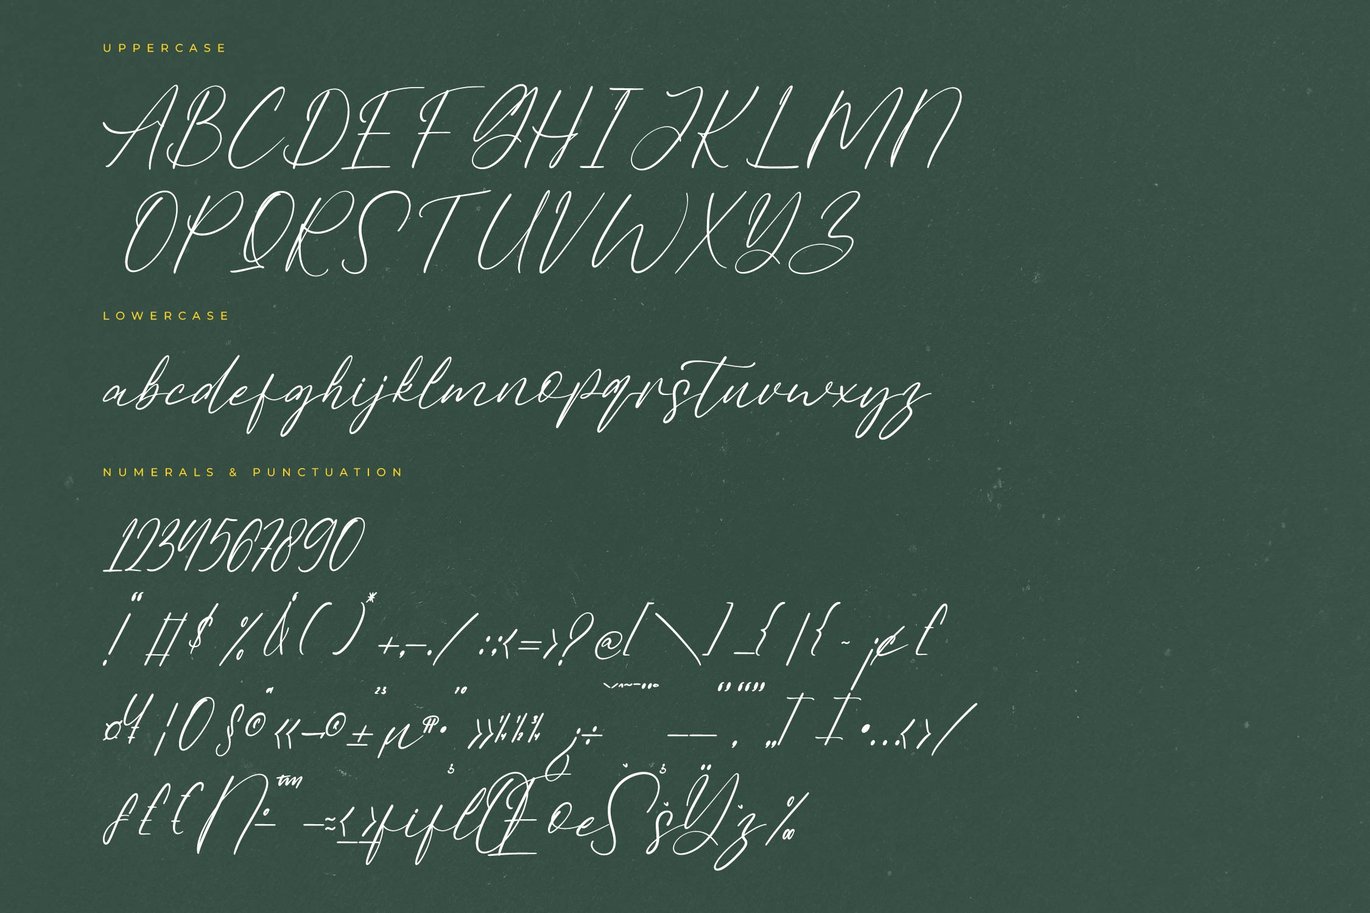 UPPERCASE
ABCDEFGHIJKLMN
OPQRSTUVWXYZ
LOWERCASE
abcdefghijklmnopqrstuvwxyz
NUMERALS & PUNCTUATION
1234567890
!“#$%&‘()*+,-./:;<=>?@[\]_{|{~¡¢£
¤¥¦0§©ª«¬®±²³µ¶·¹º»¼½¾¿÷–—‚„†‡•…‹›/
ƒ£€№™−≈≤≥fiflŒœŠšŸž‰